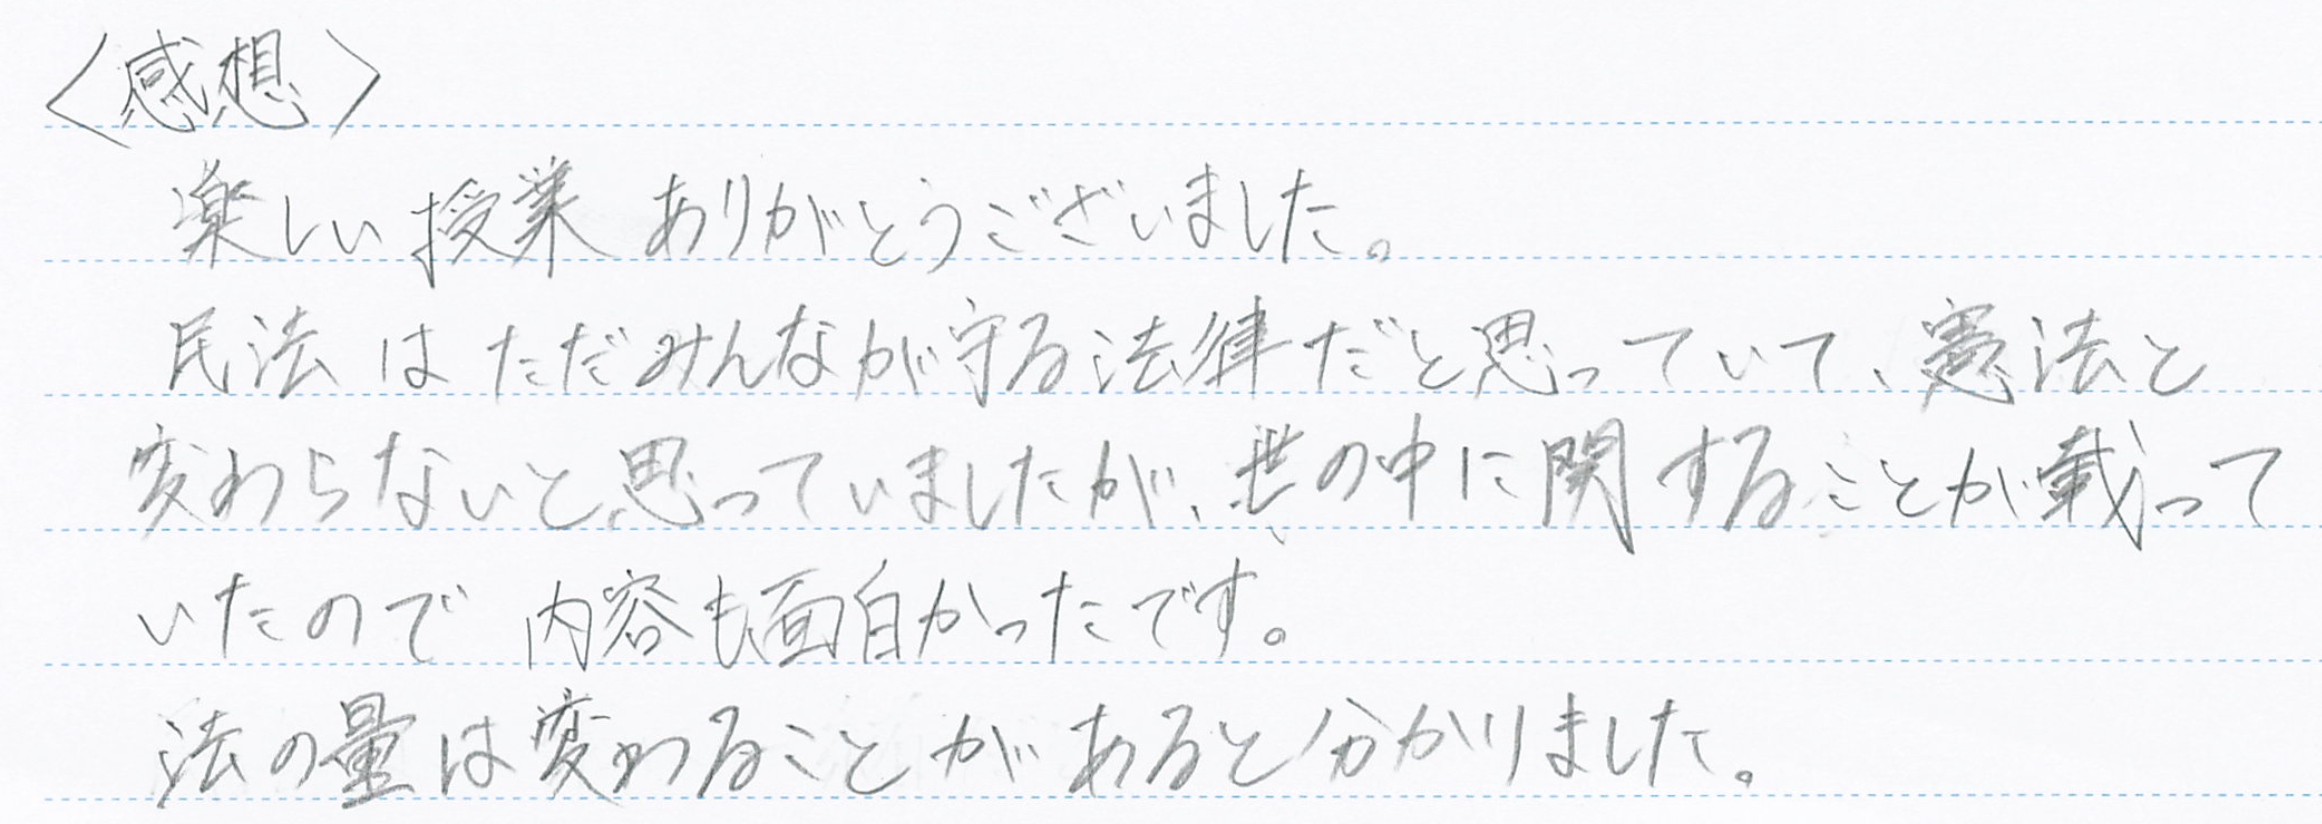 〈感想〉
楽しい授業ありがとうございました。
民法はただみんなが守る法律だと思っていて、憲法と
変わらないと思っていましたが、世の中に関することが載って
いたので内容も面白かったです。
法の量は変わることがあると分かりました。